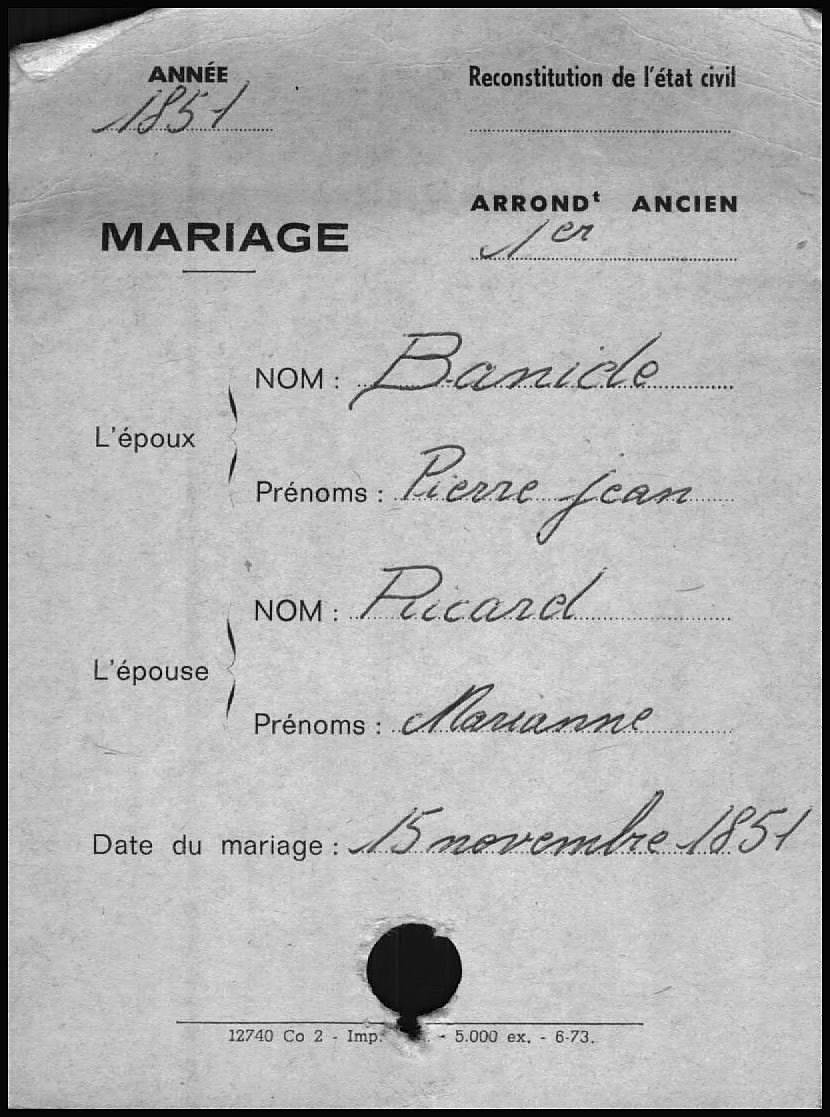 ANNÉE
1851
Reconstitution de l'état civil
ARRONDt ANCIEN
1er
MARIAGE
L'époux
NOM : Banide
Prénoms : Pierre Jean
L'épouse
NOM : Ricard
Prénoms : Marianne
Date du mariage : 15 novembre 1851
12740 Co 2 - Imp. - 5.000 ex. - 6-73.